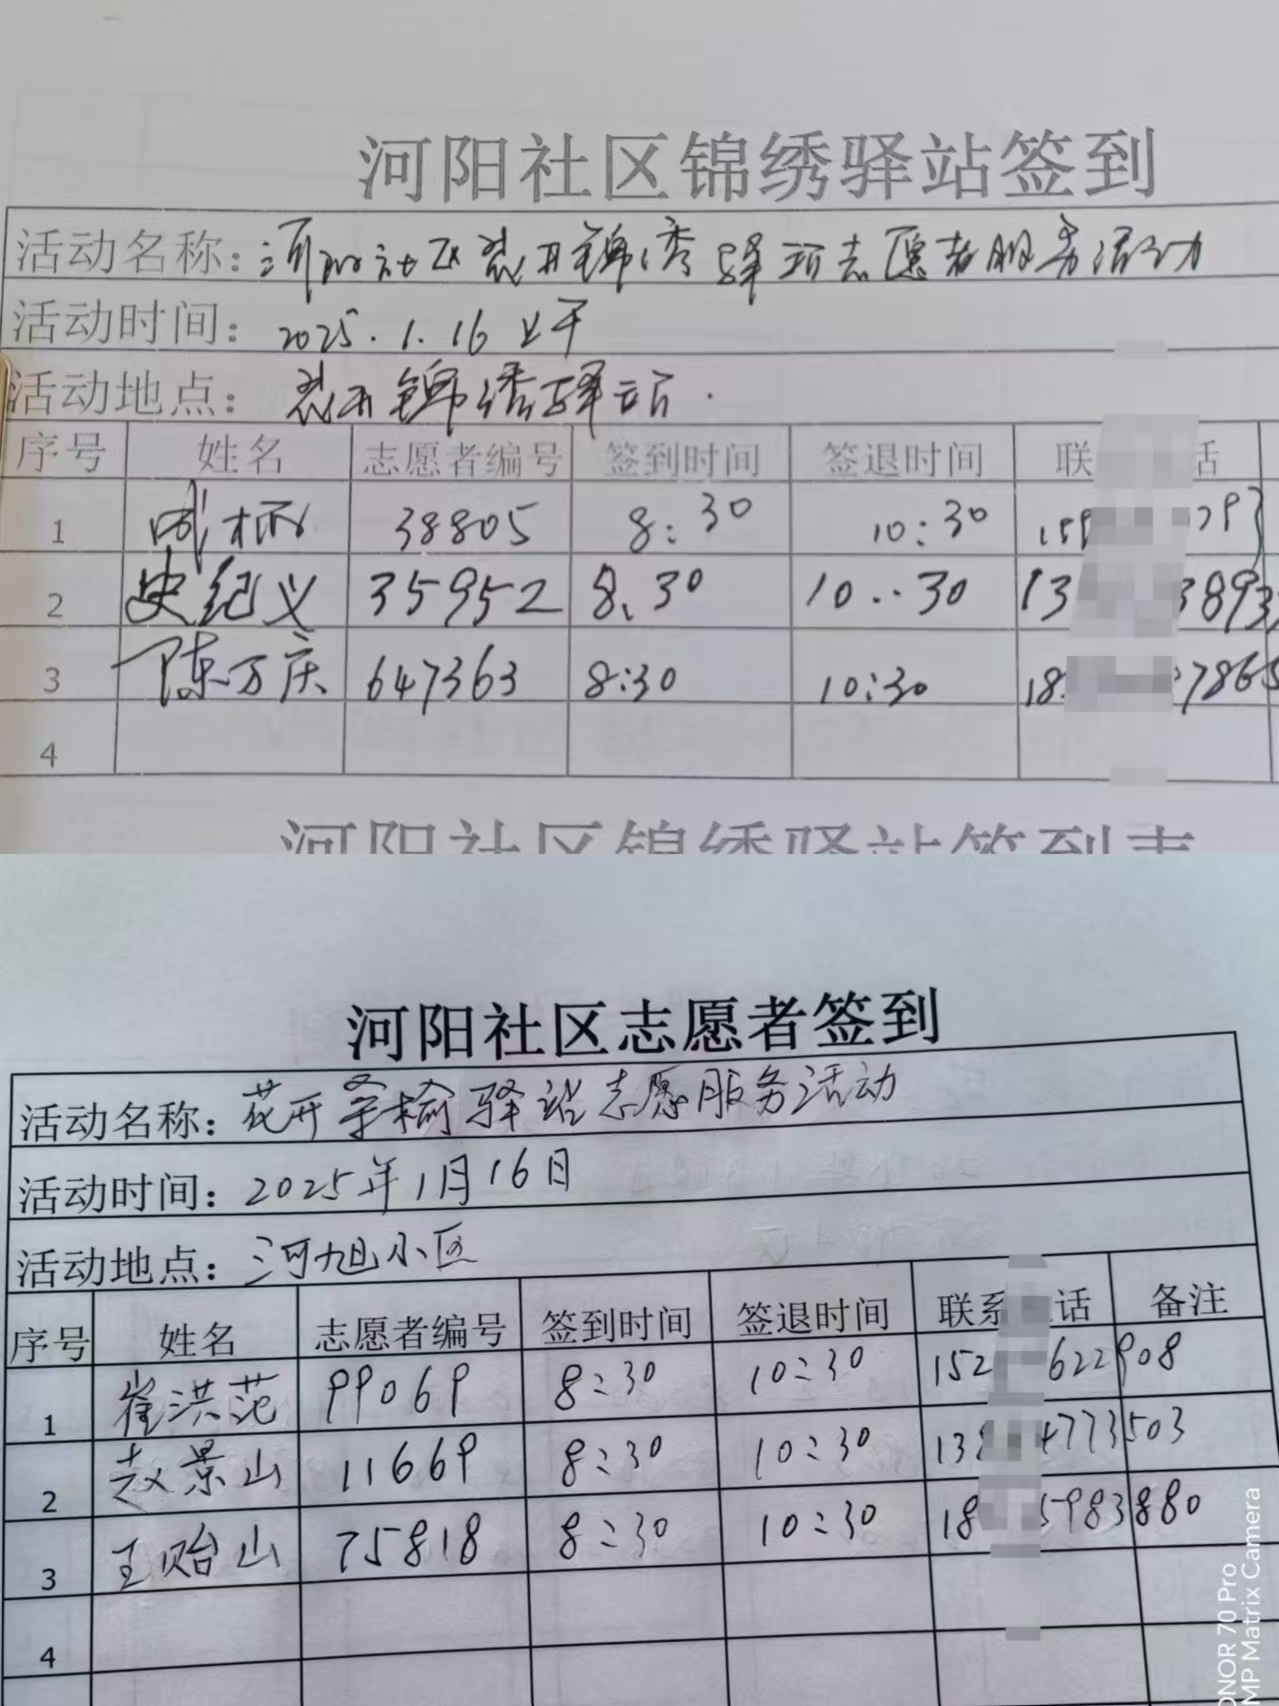 河阳社区锦绣驿站签到
活动名称:河阳社区花开锦绣驿站志愿者服务活动
活动时间: 2025.1.16 上午
活动地点: 花开锦绣驿站.
序号 姓名 志愿者编号 签到时间 签退时间 联 话
1 38805 8:30 10:30
2 史纪义 35952 8:30 10:30 13 3893
3 陈万庆 647363 8:30 10:30 18 7865
4
河阳社区锦绣驿站签到表
河阳社区志愿者签到
活动名称: 花开桑榆驿站志愿服务活动
活动时间: 2025年1月16日
活动地点: 河旭小区
序号 姓名 志愿者编号 签到时间 签退时间 联系 话 备注
1 崔洪范 99069 8:30 10:30 152 622908
2 赵景山 11669 8:30 10:30 13 4773503
3 王贻山 75818 8:30 10:30 18 5983880
4
HONOR 70 Pro
MP Matrix Camera